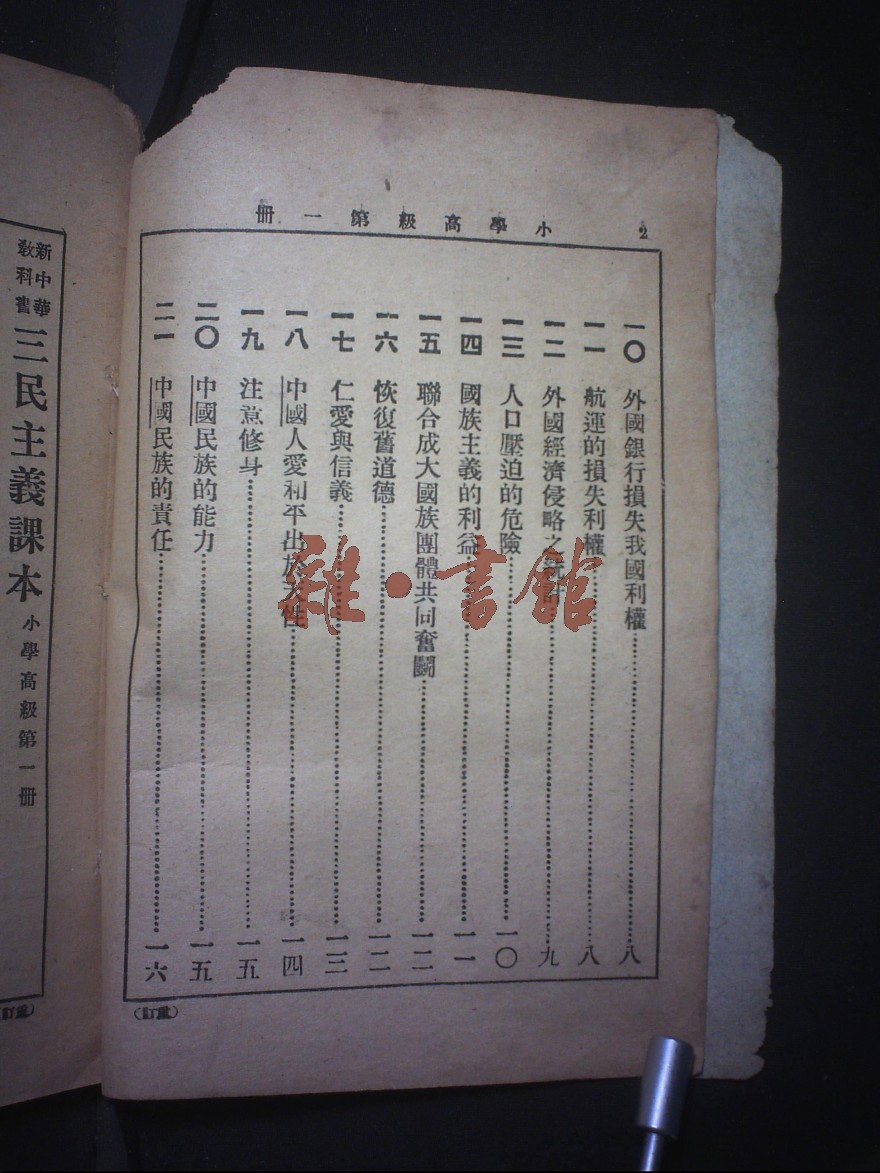 2
小學高級第一冊
一〇 外國銀行損失我國利權 八
一一 航運的損失利權 八
一二 外國經濟侵略之 九
一三 人口壓迫的危險 一〇
一四 國族主義的利益 一一
一五 聯合成大國族團體共同奮鬭 一二
一六 恢復舊道德 一二
一七 仁愛與信義 一三
一八 中國人愛和平出於天性 一四
一九 注意修身 一五
二〇 中國民族的能力 一五
二一 中國民族的責任 一六
(重訂)
新中華
教科書
三民主義課本 小學高級第一冊
訂重)
雜·書館